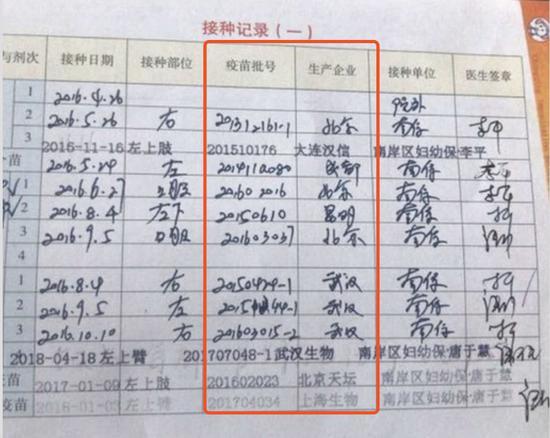 接种记录(一)
与剂次 接种日期 接种部位 疫苗批号 生产企业 接种单位 医生签章
1 2016.4.26 院外
2 2016.5.26 右 201312161-1 北京 南保
3 2016-11-16 左上肢 201510176 大连汉信 南岸区妇幼保·李平
苗 2016.5.24 左 成都 南保
1 2016.6.27 口服 201602016 南保
2 2016.8.4 左下 20150610 昆明 南保
3 2016.9.5 口服 201603037 北京 南保
4
1 2016.8.4 右 20150424-1 武汉 南保
2 2016.9.5 左 武汉 南保
3 2016.10.10 右 201603015-2 武汉 南保
2018-04-18 左上臂 201707048-1 武汉生物 南岸区妇幼保·唐于慧
苗 2017-01-09 左上肢 201602023 北京天坛 南岸区妇幼保·唐于慧
疫苗 2018-01-03 左上臂 201704034 上海生物 南岸区妇幼保·唐于慧